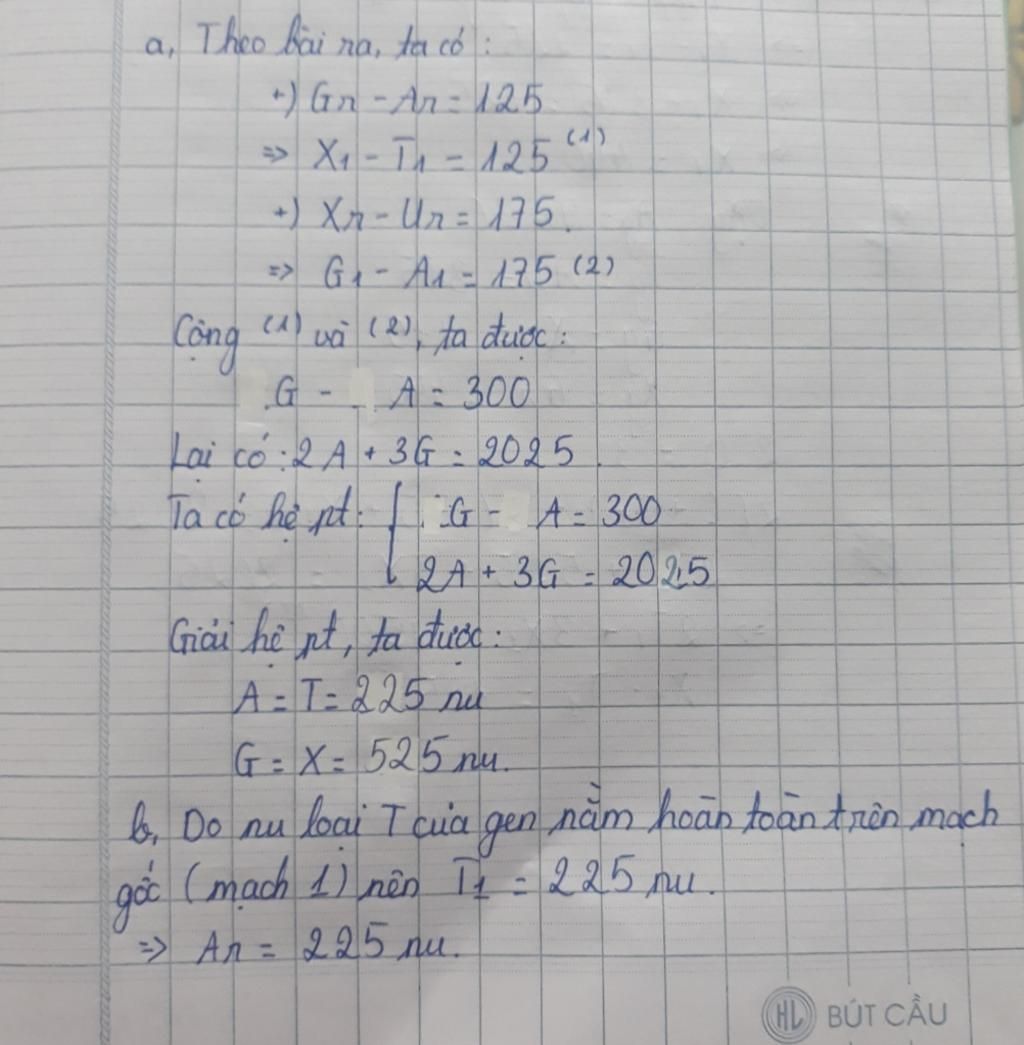 a, Theo bài ra, ta có :
+) Gr - Ar = 125
=> X1 - T1 = 125 (1)
+) Xr - Ur = 175.
=> G1 - A1 = 175 (2)
Cộng (1) và (2), ta được :
G - A = 300
Lại có : 2A + 3G = 2025.
Ta có hệ pt : { G - A = 300
2A + 3G = 2025
Giải hệ pt, ta được :
A = T = 225 nu
G = X = 525 nu.
b, Do nu loại T của gen nằm hoàn toàn trên mạch
gốc (mạch 1) nên T1 = 225 nu.
=> Ar = 225 nu.
HL BÚT CẦU